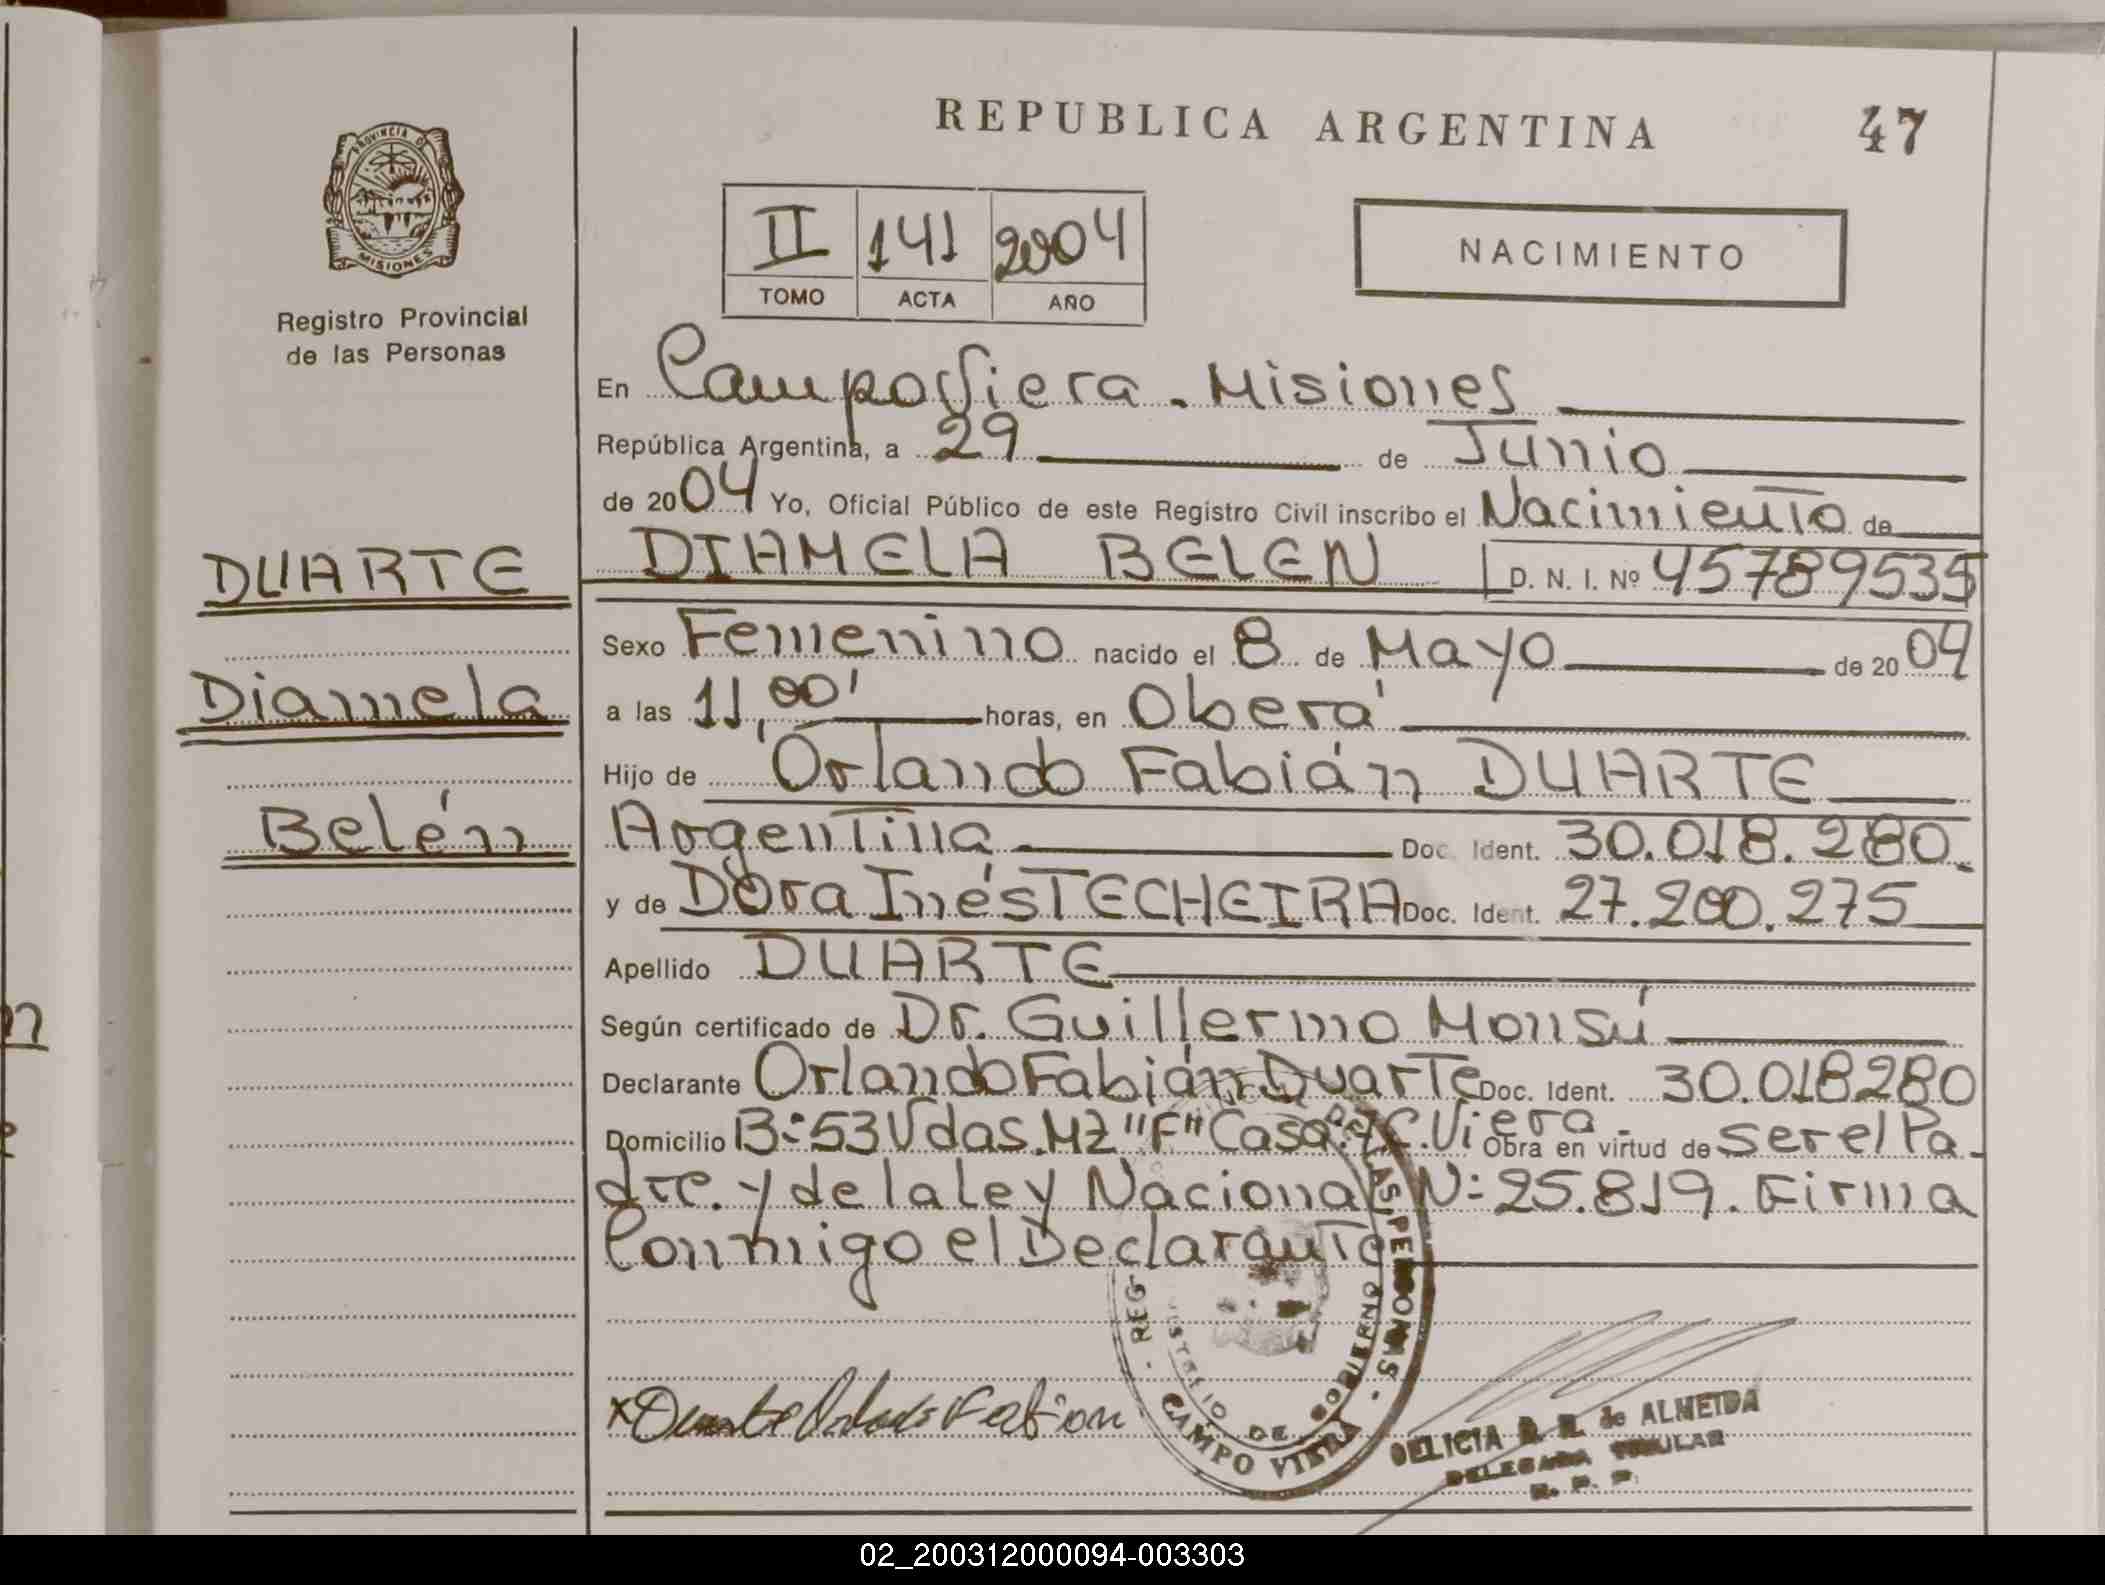 REPUBLICA ARGENTINA
47
PROVINCIA D
MISIONES
Registro Provincial
de las Personas
II 141 2004
TOMO ACTA AÑO
NACIMIENTO
En Campo Viera - Misiones
República Argentina, a 29 de Junio
de 2004 Yo, Oficial Público de este Registro Civil inscribo el Nacimiento de
DIAMELA BELEN D. N. I. Nº 45789535
DUARTE
Diamela
Belén
Sexo Femenino nacido el 8 de Mayo de 2004
a las 11,00' horas, en Oberá
Hijo de Orlando Fabián DUARTE
Argentina Doc. Ident. 30.018.280.
y de Dora Inés TECHEIRA Doc. Ident. 27.200.275
Apellido DUARTE
Según certificado de Dr. Guillermo Monsú
Declarante Orlando Fabián Duarte Doc. Ident. 30.018280
Domicilio B: 53 Vdas. MZ "F" Casa: 7 C. Viera - Obra en virtud de ser el Pa-
dre. y de la ley Nacional N: 25.819. Firma
Conmigo el Declarante
x Duarte Orlando Fabian
REG
LAS PERSONAS -
DE GOBIERNO
CAMPO VIERA
DELICIA de ALMEIDA
DELEGADA TITULAR
R. P. P.
02_200312000094-003303